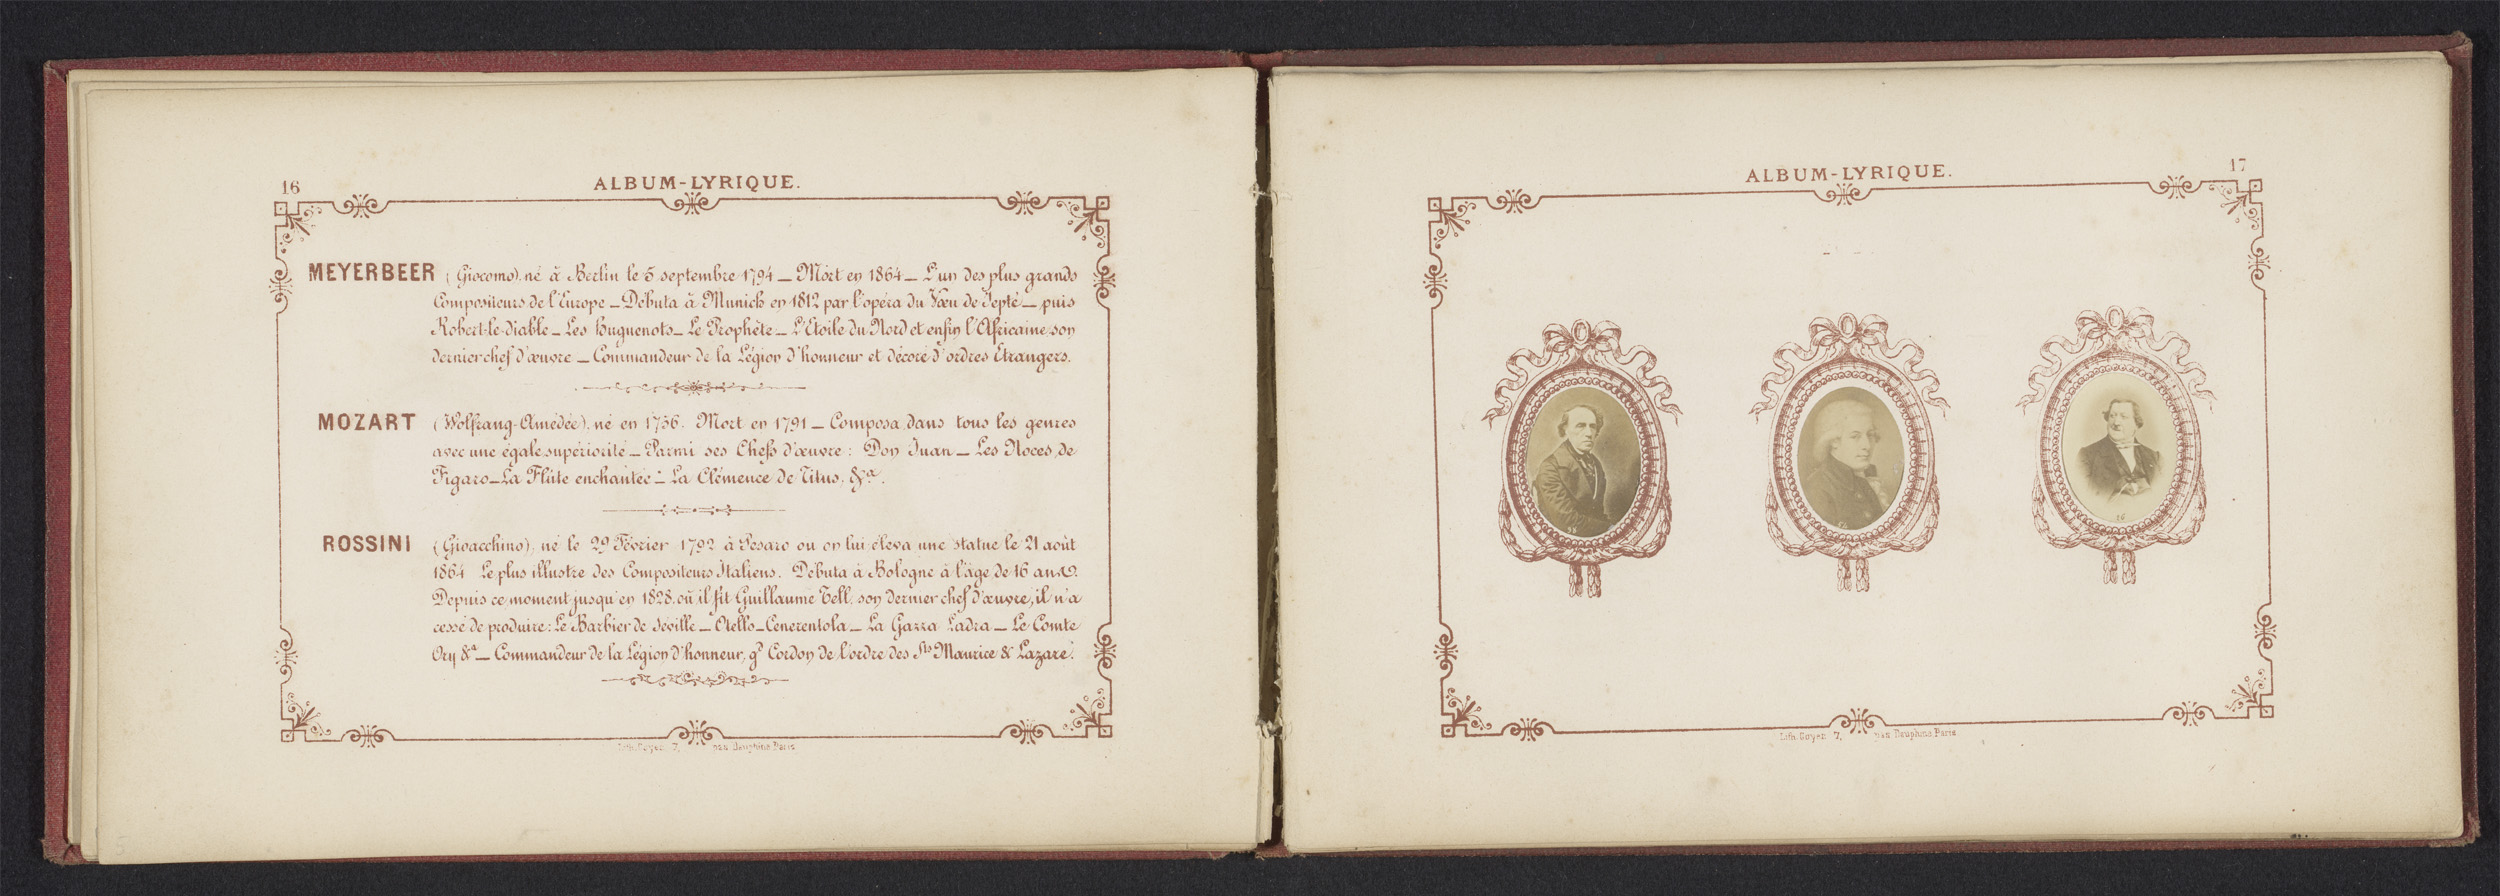 16
ALBUM-LYRIQUE.
MEYERBEER (Giocomo), né à Berlin le 5 septembre 1794 _ Mort en 1864 _ L'un des plus grands
Compositeurs de l'Europe _ Débuta à Munich en 1812 par l'opéra du Vœu de Jepté _ puis
Robert-le-Diable _ Les Huguenots _ Le Prophète _ L'Étoile du Nord et enfin l'Africaine, son
dernier chef d'œuvre _ Commandeur de la Légion d'honneur et décoré d'ordres Étrangers.
MOZART (Wolfrang-Amédée), né en 1756. Mort en 1791 _ Composa, dans tous les genres
avec une égale supériorité _ Parmi ses Chefs d'œuvre : Don Juan _ Les Noces de
Figaro _ La Flûte enchantée _ La Clémence de Titus, &a.
ROSSINI (Gioacchino), né le 29 Février 1792 à Pesaro ou on lui éleva une statue le 21 août
1864 Le plus illustre des Compositeurs Italiens. Débuta à Bologne à l'âge de 16 ans.
Depuis ce moment jusqu'en 1828, où il fit Guillaume Tell, son dernier chef d'œuvre, il n'a
cessé de produire : Le Barbier de Séville _ Otello _ Cenerentola _ La Gazza Ladra _ Le Comte
Ory &a _ Commandeur de la Légion d'honneur, gd Cordon de l'ordre des Sts Maurice & Lazare.
Lith. Goyer 7, pas Dauphine Paris
17
ALBUM-LYRIQUE.
Lith. Goyer 7, pas Dauphine Paris